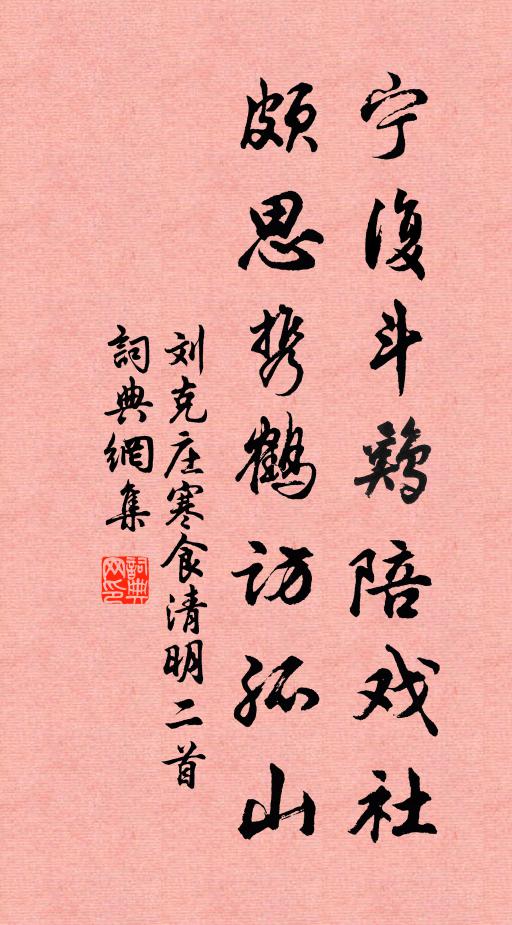 宁復斗鷄陪戏社
颇思携鶴访孤山
刘克庄寒食清明二首
詞典網集
詞典网印